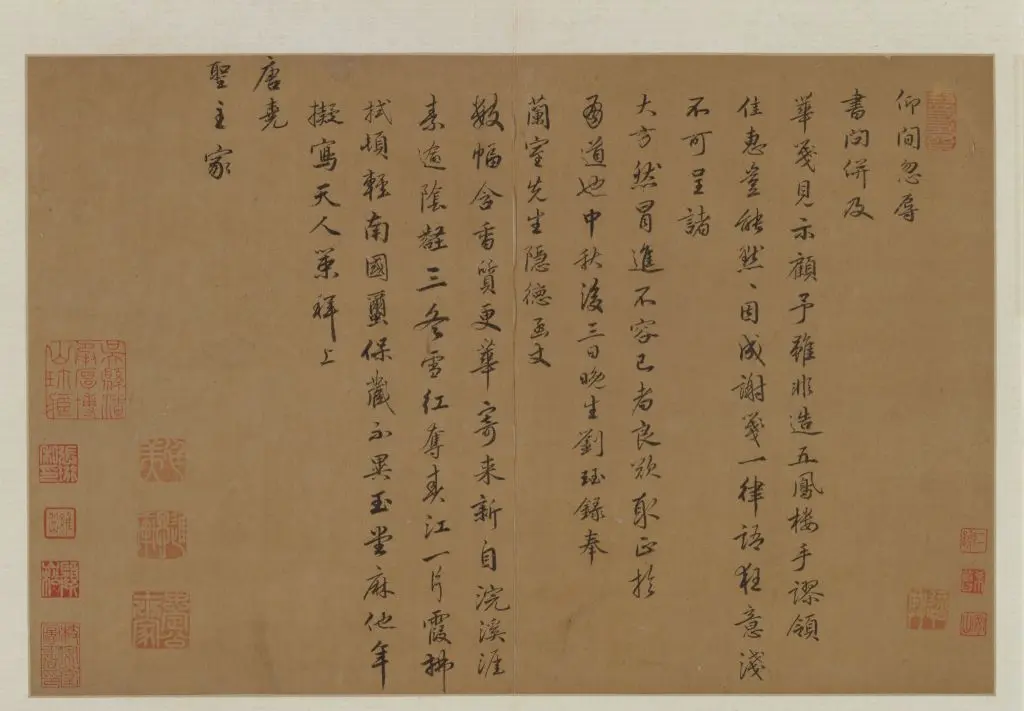 仰間忽辱
書問併及
華箋見示顧予雖非造五鳳樓手謬領
佳惠豈能默默因成謝箋一律語狂意淺
不可呈諸
大方然冒進不容已者良欲取正於
有道也中秋後三日晚生劉珏錄奉
蘭室先生隱德函丈
數幅含香質更華寄来新自浣溪涯
素逾陰壑三冬雪紅奪春江一片霞拂
拭頓輕南國蠒保藏不異玉堂麻他年
擬寫天人策拜上
唐堯
聖主家